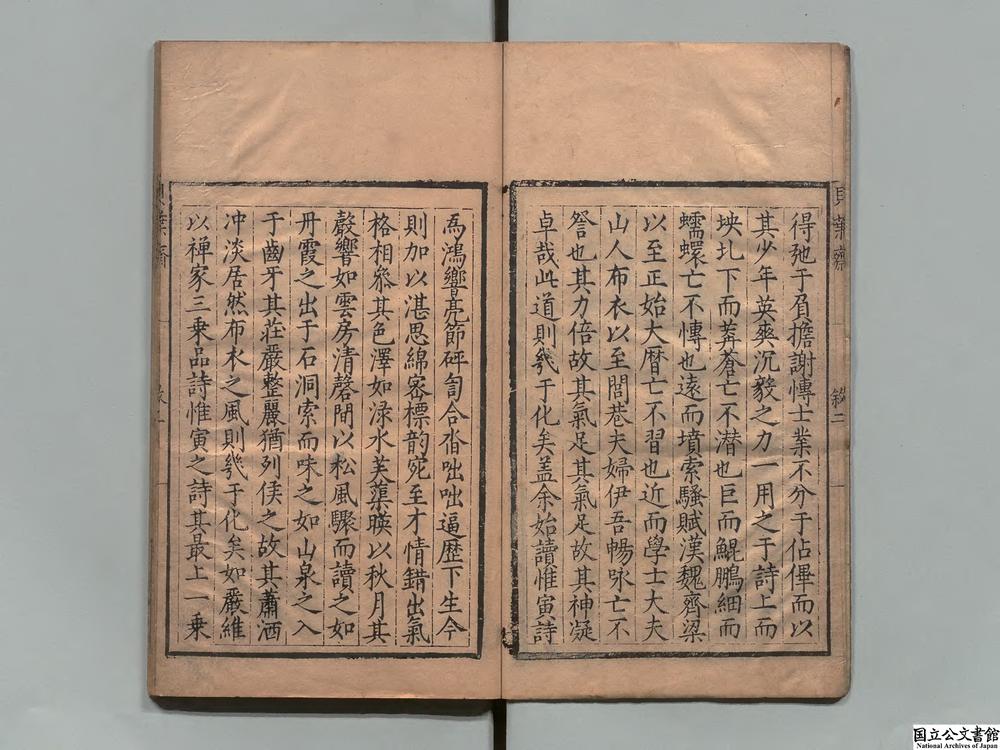 得弛于負擔謝慱士業不分于佔俾而以
其少年英爽沉毅之力一用之于詩上而
坱圠下而莽蒼亡不潜也巨而鯤鵬細而
蠕蠉亡不慱也遠而墳索騷賦漢魏齊梁
以至正始大曆亡不習也近而學士大夫
山人布衣以至閭巷夫婦伊吾暢咏亡不
詧也其力倍故其氣足其氣足故其神凝
卓哉此道則幾于化矣盖余始讀惟寅詩
貝葉齋
敘二
爲鴻響亮節砰訇合沓咄咄逼歴下生今
則加以湛思綿宻標韵宛至才情錯出氣
格相叅其色澤如渌水芙蕖暎以秋月其
聲響如雲房清磬間以松風驟而讀之如
丹霞之出于石洞索而味之如山泉之入
于齒牙其莊嚴整麗猶列侯之故其蕭洒
冲淡居然布衣之風則幾于化矣如嚴維
以禅家三乗品詩惟寅之詩其最上一乗
国立公文書館
National Archives of Japan